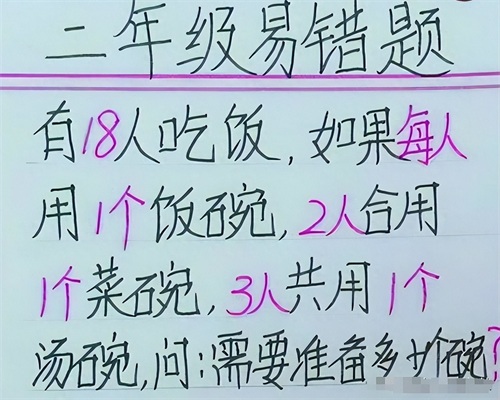 二年级易错题
有18人吃饭,如果每人
用1个饭碗,2人合用
1个菜碗,3人共用1个
汤碗,问:需要准备多少个碗?